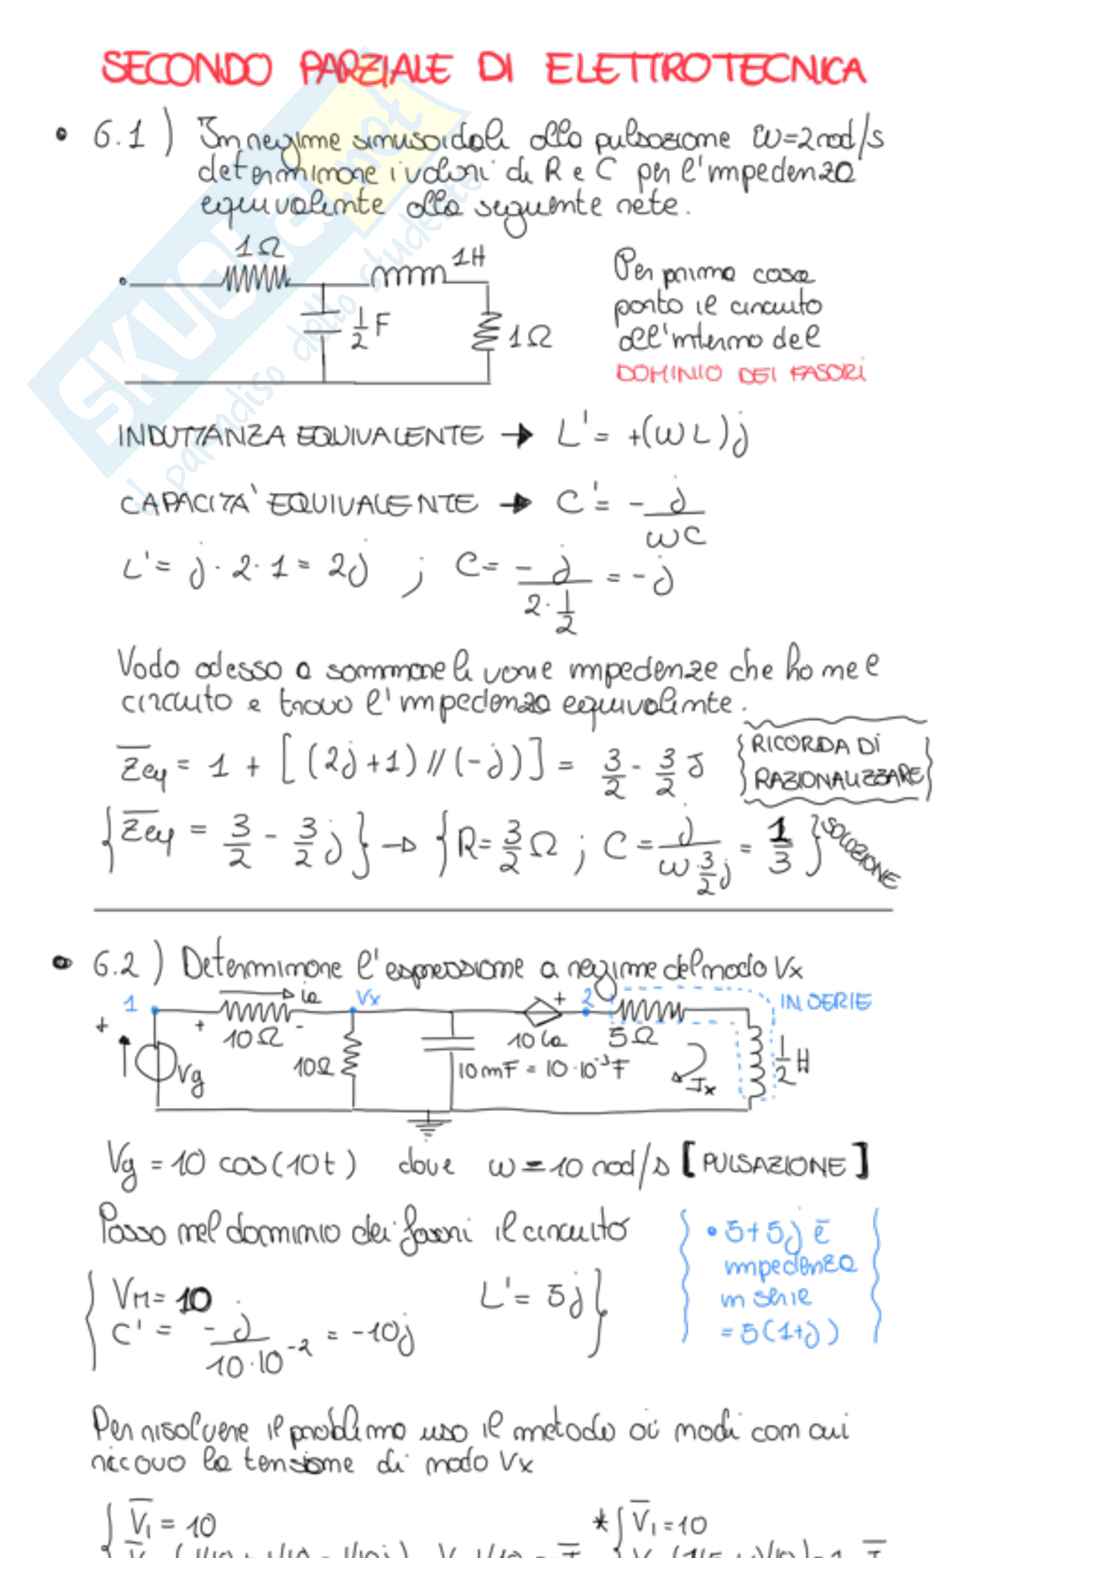 SECONDO PARZIALE DI ELETTROTECNICA
• 6.1) In regime sinusoidale alla pulsazione ω=2rad/s
determinare i valori di R e C per l'impedenza
equivalente alla seguente rete.
1Ω
1H
1/2 F
1Ω
Per prima cosa
porto il circuito
all'interno del
DOMINIO DEI FASORI
INDUTTANZA EQUIVALENTE → L' = +(ωL)j
CAPACITA' EQUIVALENTE → C' = - j/ωC
L' = j · 2 · 1 = 2j ; C = - j/(2 · 1/2) = -j
Vado adesso a sommare le varie impedenze che ho nel
circuito e trovo l'impedenza equivalente.
Zeq = 1 + [(2j+1) // (-j)] = 3/2 - 3/2 j
{RICORDA DI
RAZIONALIZZARE}
{Zeq = 3/2 - 3/2 j} → {R = 3/2 Ω ; C = j/(ω 3/2 j) = 1/3} SOLUZIONE
• 6.2) Determinare l'espressione a regime del nodo Vx
1
ia
Vx
2
IN SERIE
+
+
10Ω
-
+
10ia
5Ω
Vg
10Ω
10mF = 10·10⁻³F
Ix
1/2 H
Vg = 10 cos(10t) dove ω = 10 rad/s [PULSAZIONE]
Passo nel dominio dei fasori il circuito
{VM = 10
L' = 5j}
C' = -j/(10·10⁻²) = -10j
{• 5+5j è
impedenza
in serie
= 5(1+j)}
Per risolvere il problema uso il metodo ai nodi con cui
ricavo la tensione di nodo Vx
{V₁ = 10
*{V₁ = 10